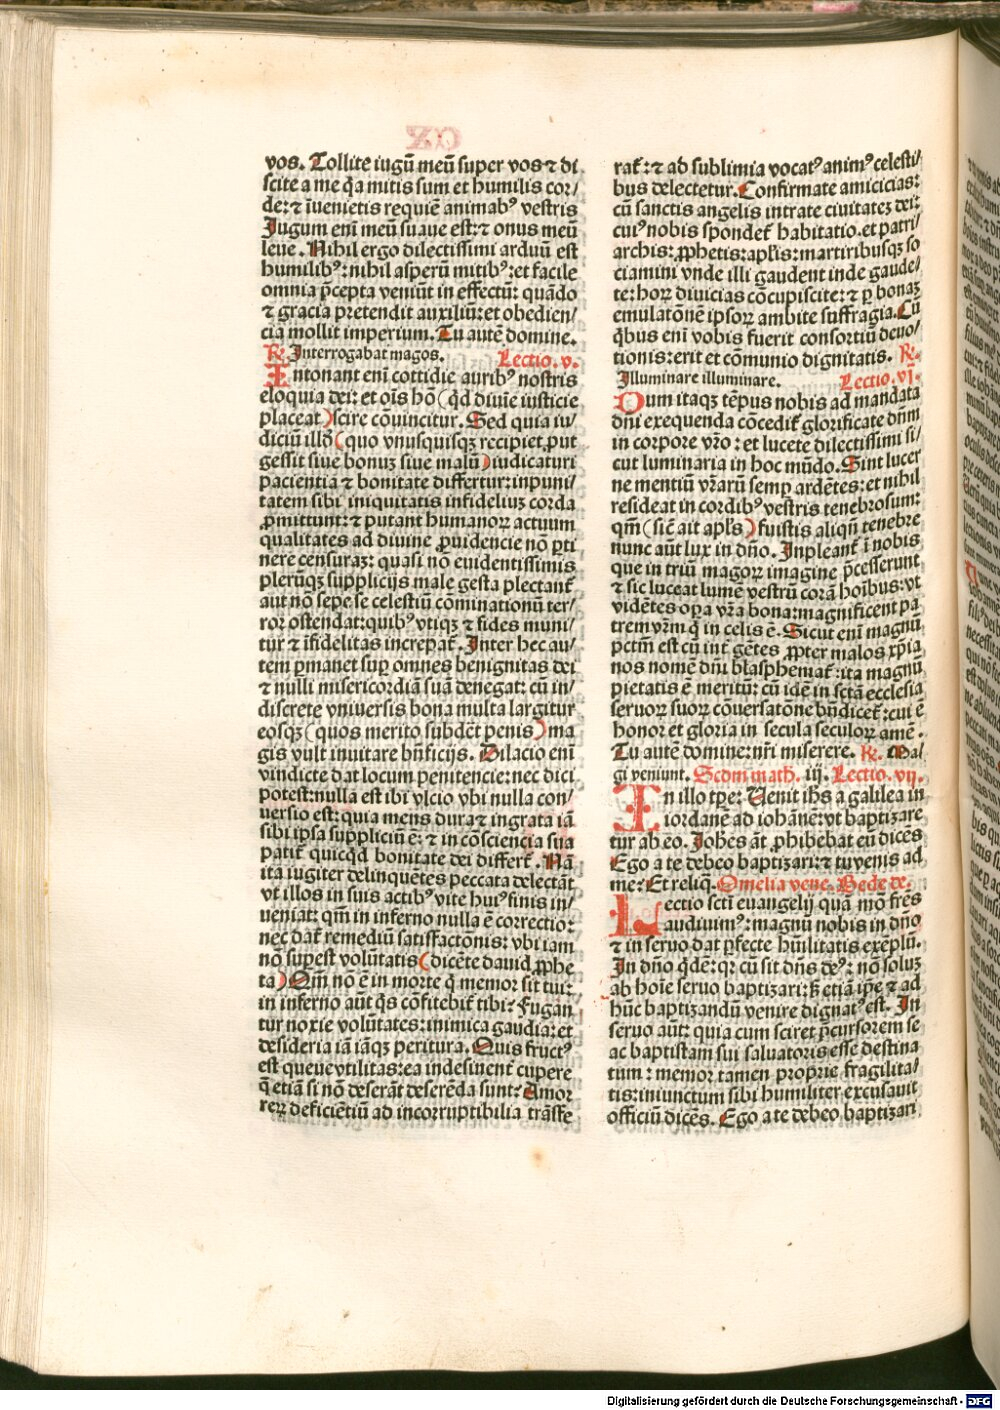 vos. Tollite iugū meū super vos ⁊ di
scite a me q̄a mitis sum et humilis cor/
de: ⁊ īuenietis requiē animabꝰ vestris
Jugum enī meū suaue est: ⁊ onus meū
leue. Nihil ergo dilectissimi arduū est
humilibꝰ: nihil asperū mitibꝰ: et facile
omnia p̄cepta veniūt in effectū: quādo
⁊ gracia pretendit auxiliū: et obedien/
cia mollit imperium. Tu autē domine.
R̄. Interrogabat magos. Lectio .v.
Intonant enī cottidie auribꝰ nostris
eloquia dei: et oīs hō (qd̄ diuīe iusticie
placeat) scire cōuincitur. Sed quia iu/
diciū illd̄ (quo vnusquisqꝫ recipiet put
gessit siue bonuꝫ siue malū) iudicaturi
pacientia ⁊ bonitate differtur: inpuni/
tatem sibi iniquitatis infideliuꝫ corda
ꝓmittunt: ⁊ putant humanoꝝ actuum
qualitates ad diuine ꝓuidencie nō ꝑti
nere censuraꝫ: quasi nō euidentissimis
plerūqꝫ supplicijs male gesta plectant᷑
aut nō sepe se celestiū cōminationū ter/
ror ostendat: quibꝰ vtiqꝫ ⁊ fides muni/
tur ⁊ īfidelitas increpat᷑. Inter hec au/
tem ꝑmanet suꝑ omnes benignitas dei
⁊ nulli misericordiā suā denegat: cū in/
discrete vniuersis bona multa largitur
eosqꝫ (quos merito subdēt penis) ma
gis vult inuitare bn̄ficijs. Dilacio enī
vindicte dat locum penitencie: nec dici
potest: nulla est ibi vlcio vbi nulla con/
uersio est: quia mens dura ⁊ ingrata iā
sibi ipsa suppliciū ē: ⁊ in cōsciencia sua
patit᷑ quicqd̄ bonitate dei differt᷑. Nā
ita iugiter delinquētes peccata delectāt
vt illos in suis actibꝰ vite huiꝰ finis in/
ueniat: qm̄ in inferno nulla ē correctio:
nec dat᷑ remediū satisfactonis: vbi iam
nō suꝑest volūtatis (dicēte dauid ꝓphe
ta) Qm̄ nō ē in morte q̄ memor sit tui:
in inferno aūt q̄s cōfitebit᷑ tibi: Fugan
tur noxie volūtates: inimica gaudia: et
desideria iā iāqꝫ peritura. Quis fructꝰ
est queue vtilitas: ea indesinent᷑ cupere
q̄ etiā si nō deserāt deserēda sunt: Amor
reꝝ deficiētiū ad incorruptibilia trāsfe
rat᷑: ⁊ ad sublimia vocatꝰ animꝰ celesti/
bus delectetur. Confirmate amicicias:
cū sanctis angelis intrate ciuitateꝫ dei:
cuiꝰ nobis spondet᷑ habitatio. et patri/
archis: ꝓphetis: apl̄is: martiribusqꝫ so
ciamini vnde illi gaudent inde gaude/
te: hoꝝ diuicias cōcupiscite: ⁊ ꝑ bonaꝫ
emulatōne ipsoꝝ ambite suffragia. Cū
qbus enī vobis fuerit consortiū deuo/
tionis: erit et cōmunio dignitatis. R̄.
Illuminare illuminare. Lectio .vi.
Dum itaqꝫ tēpus nobis ad mandata
dn̄i exequenda cōcedit᷑ glorificate dn̄m
in corpore vr̄o: et lucete dilectissimi si/
cut luminaria in hoc mūdo. Sint lucer
ne mentiū vr̄arū semꝑ ardētes: et nihil
resideat in cordibꝰ vestris tenebrosum:
qm̄ (sic̄ ait apl̄s) fuistis aliqn̄ tenebre
nunc aūt lux in dn̄o. Inpleant᷑ ī nobis
que in triū magoꝝ imagine p̄cesserunt
⁊ sic luceat lumē vestrū corā hoībus: vt
vidētes opa vr̄a bona: magnificent pa
trem vr̄m q̄ in celis ē. Sicut enī magnū
pctm̄ est cū int᷑ gētes ꝓpter malos xp̄ia
nos nomē dn̄i blasphemat᷑: ita magnū
pietatis ē meritū: cū idē in sctā ecclesia
seruoꝝ suoꝝ cōuersatōne bn̄dicet᷑: cui ē
honor et gloria in secula seculoꝝ amē.
Tu autē domine: nr̄i miserere. R̄. Mal
gi veniunt. Scdm math. iij. Lectio .vij.
In illo tꝑe: Uenit ih̄s a galilea in
iordanē ad iohānē: vt baptizare
tur ab eo. Johēs āt ꝓhibebat eū dicēs
Ego a te debeo baptizari: ⁊ tu venis ad
me: Et reliq̄. Omelia vene. Bede de.
Lectio scti euangelij quā mō frēs
audiuimꝰ: magnū nobis in dn̄o
⁊ in seruo dat ꝑfecte hūilitatis exēplū.
In dn̄o q̄dē: qꝛ cū sit dn̄s deꝰ: nō soluꝫ
ab hoīe seruo baptizari: sꝫ etiā ip̄e ⁊ ad
hūc baptizandū venire dignatꝰ est. In
seruo aūt: quia cum sciret p̄cursorem se
ac baptistam sui saluatoris esse destina
tum: memor tamen proprie fragilita/
tis: iniunctum sibi humiliter excusauit
officiū dicēs. Ego a te debeo baptizari
Digitalisierung gefördert durch die Deutsche Forschungsgemeinschaft - DFG